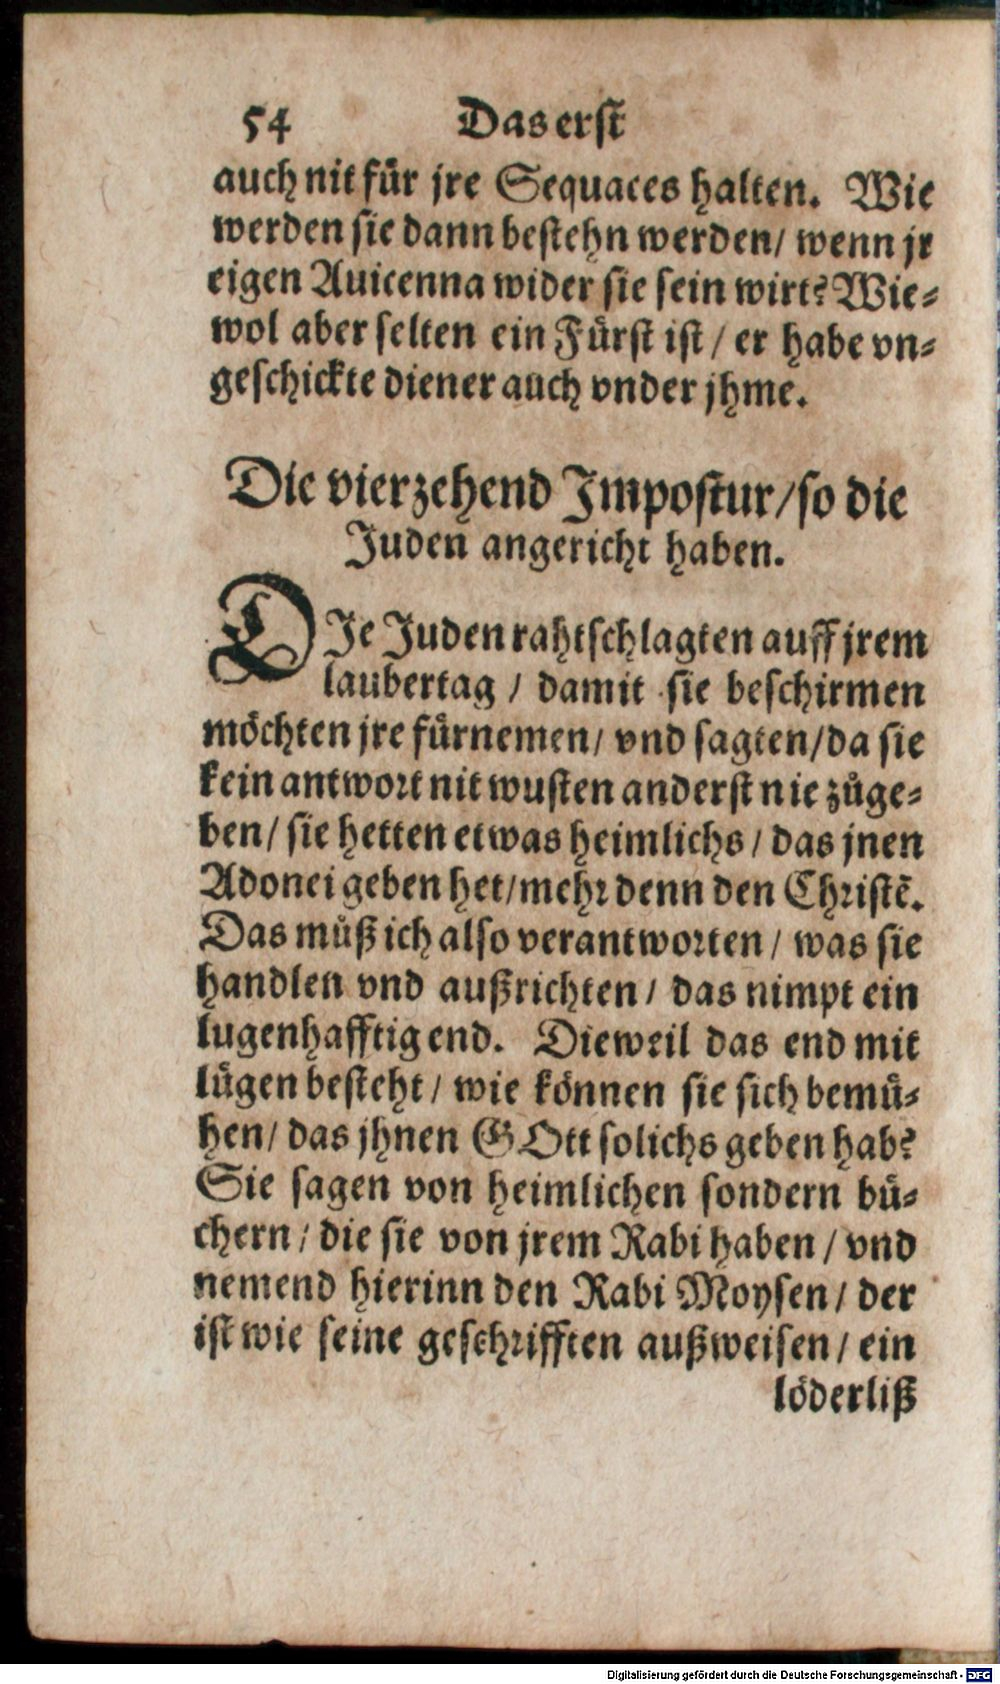 54 Das erst
auch nit für jre Sequaces halten. Wie
werden sie dann bestehn werden/ wenn jr
eigen Auicenna wider sie sein wirt? Wie-
wol aber selten ein Fürst ist / er habe vn-
geschickte diener auch vnder jhme.
Die vierzehend Impostur/so die
Juden angericht haben.
DIe Juden rahtschlagten auff jrem
laubertag / damit sie beschirmen
möchten jre fürnemen/ vnd sagten/da sie
kein antwort nit wusten anderst nie zůge-
ben/ sie hetten etwas heimlichs / das jnen
Adonei geben het/mehr denn den Christē.
Das můß ich also verantworten / was sie
handlen vnd außrichten / das nimpt ein
lugenhafftig end. Dieweil das end mit
lügen besteht / wie können sie sich bemü-
hen/ das jhnen GOtt solichs geben hab?
Sie sagen von heimlichen sondern bü-
chern / die sie von jrem Rabi haben / vnd
nemend hierinn den Rabi Moysen / der
ist wie seine geschrifften außweisen / ein
löderliß
Digitalisierung gefördert durch die Deutsche Forschungsgemeinschaft - DFG